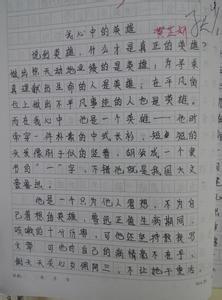 我心中的英雄
说到英雄，什么才是真正的英雄？
做出惊天动地业绩的是英雄，为寻求
真理献出生命的人是英雄；在平凡的
位上做出不平凡事绩的人也是英雄。
而在我心中，他是一个英雄——他时
身穿一件朴素的中式长衫，短短的
头发像刷子似的竖着，胡须成一个隶
书的“一”字，不错他就是我国大文
豪鲁迅。
他是一个只为他人着想，不为自
己着想的英雄，鲁迅正值生病期间，
咳嗽的十分厉害，可他还坚持教我写
文章，可他对自己的病情毫不在乎，